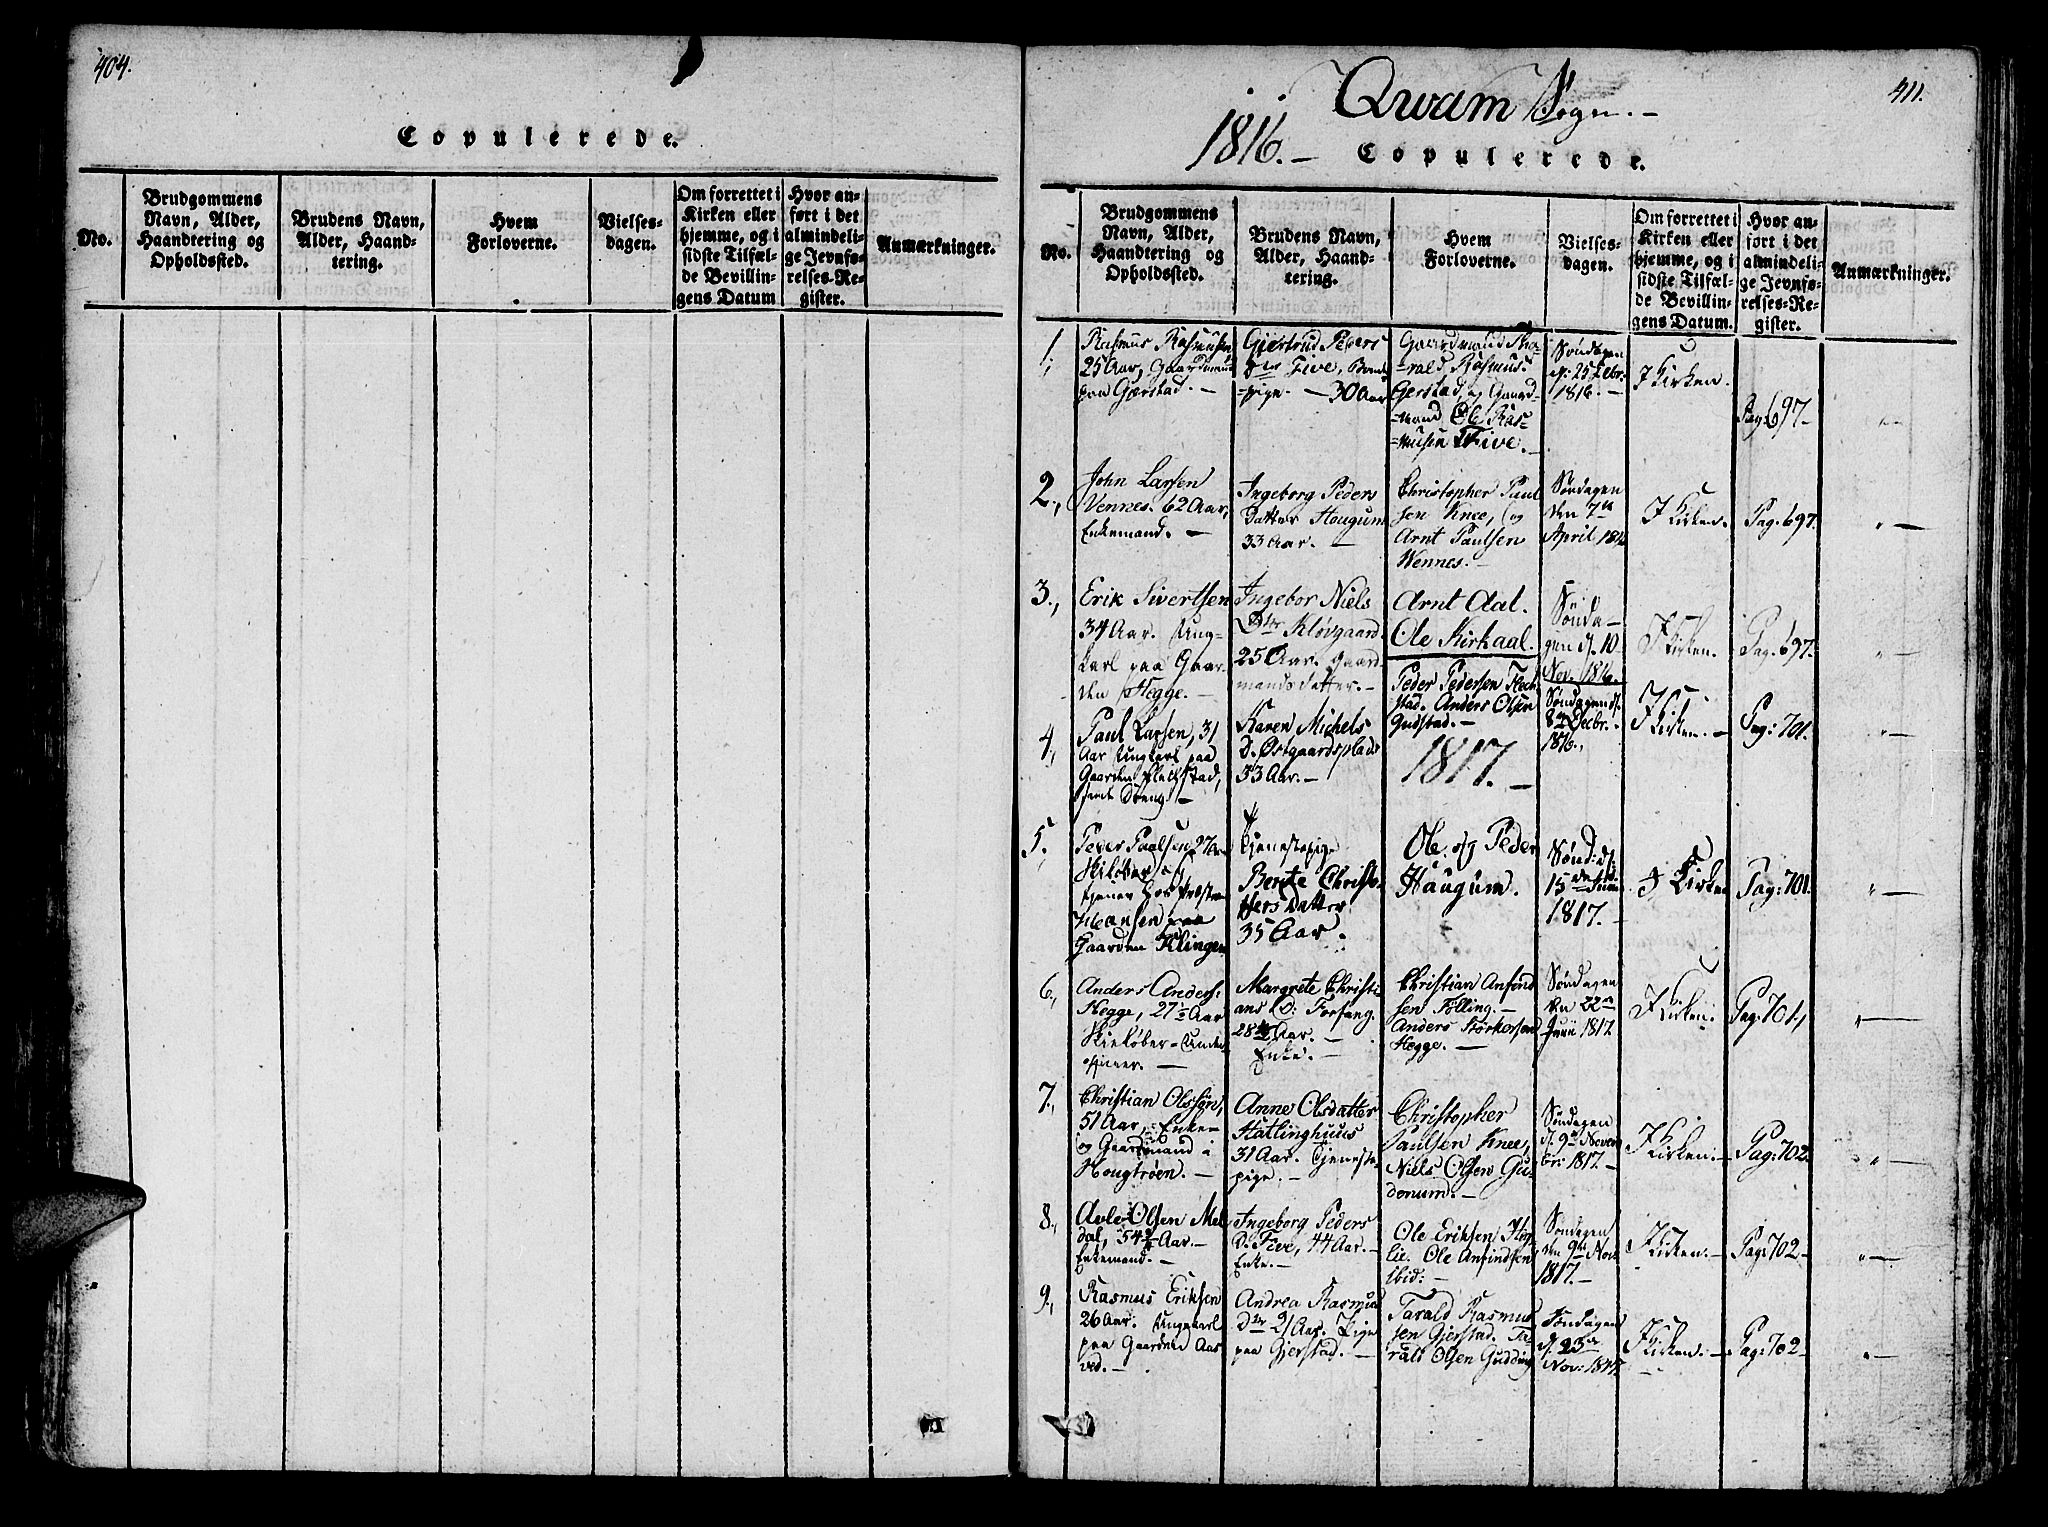 404.
Copulerede.
No.
Brudgommens
Navn, Alder,
Haandtering og
Opholdssted.
Brudens Navn,
Alder, Haand-
tering.
Hvem
Forloverne.
Vielses-
dagen.
Om forrettet i
Kirken eller
hjemme, og i
sidste Tilfæl-
de Bevillin-
gens Datum
Hvor an-
ført i det
almindeli-
ge Jevnfø-
relses-Re-
gister.
Anmærkninger.
411.
Qwam Sogn.-
1816.-
Copulerede.
No.
Brudgommens
Navn, Alder,
Haandtering og
Opholdssted.
Brudens Navn,
Alder, Haand-
tering.
Hvem
Forloverne.
Vielses-
dagen.
Om forrettet i
Kirken eller
hjemme, og i
sidste Tilfæl-
de Bevillin-
gens Datum.
Hvor an-
ført i det
almindeli-
ge Jevnfø-
relses-Re-
gister.
Anmærkninger.
1.,
Rasmus Rasmusen
25 Aar, Gaardmand
paa Gjerstad. -
Giertrud Peders
Dtr Five,
=pige. - 30 Aar
Gaardmand Tha-
=rald Rasmus:
Gerstad, og Gaard-
=mand Ole Ras-
=musen Five. -
Søndagen
d: 25 Febr.
1816. -
I Kirken.
Pag: 697-
2.,
John Larsen
Vennes. 62 Aar,
Enkemand. -
Ingeborg Peders
Datter Hougum
33 Aar. -
Christopher Paul
sen Knee, og
Arnt Paulsen
Wennes. -
Søndagen
den 7de
April 1816
I Kirken.
Pag: 697.
" -
3.,
Erik Sivertsen
34 Aar. Ung-
karl paa Gaar-
den Hegge. -
Ingebor Niels
Dtr Kløvgaard.
25 Aar. Gaard
mands datter. -
Arnt Aal.
Ole Kirkaal.
Sønda-
gen d. 10
Nov. 1816.
I Kirken.
Pag: 697.
" -
4.,
Paul Larsen, 31
Aar Ungkarl paa
Gaarden Flechstad,
Karen Michels
D. Østgaardsplads
33 Aar. -
Peder Pedersen Flech
stad. Anders Olsen
Gudstad. -
Søndagen d.
8de Decbr.
1816.,
I Kirken. -
Pag: 701.
" -
1817. -
5.,
Peder Paalsen 27 Aar
Skiløber og
tjener hos
Hansen paa
Gaarden Klingen
Tjenestepige
Berite Christo-
fers Datter
35 Aar.
Ole og Peder
Haugum.
Sønd: d:
15de Juni
1817. -
I Kirken
Pag: 701.
" -
6.,
Anders Anders:
Hegge, 27½ Aar
Skieløber-Under
Margrete Christi
ans D: Forfang.
Aar. -
Enke. -
Christian Anfind
sen Følling. -
Anders Størkersen
Hegge. -
Søndagen
den 22de
Junii 1817
I Kirken.
Pag: 701,
" -
7.,
Christian Olssøn,
51 Aar, Enke-
og Gaardmand i
Hougtrøen. -
Anne Olsdatter
Hatlinghuus
31 Aar. Tjeneste-
pige. -
Christopher
Paulsen Knee,
Niels Olsen Gu-
donum. -
Søndagen
d. 9de Novem
br: 1817. -
I Kirken. -
Pag: 702.
" -
8.,
Avle Olsen Mel
dal, 54 Aar. -
Enkemand. -
Ingeborg Peders
D. Five, 44 Aar. -
Enke. -
Ole Eriksen
lie. Ole Anfindsen
ibid: -
Søndagen
den 9de Nov:
1817. -
I Kirken. -
Pag: 702-
" -
9.,
Rasmus Eriksen
26 Aar. Ungkarl
paa Gaarden Aas
ved. -
Andrea Rasmus
Dtr 21 Aar. Pige
paa Gjerstad. -
Tarald Rasmus
sen Gjerstad. Ta-
rald Olsen Gudding
Søndagen
d. 23de
Nov: 1817.
I Kirken. -
Pag: 702
" -